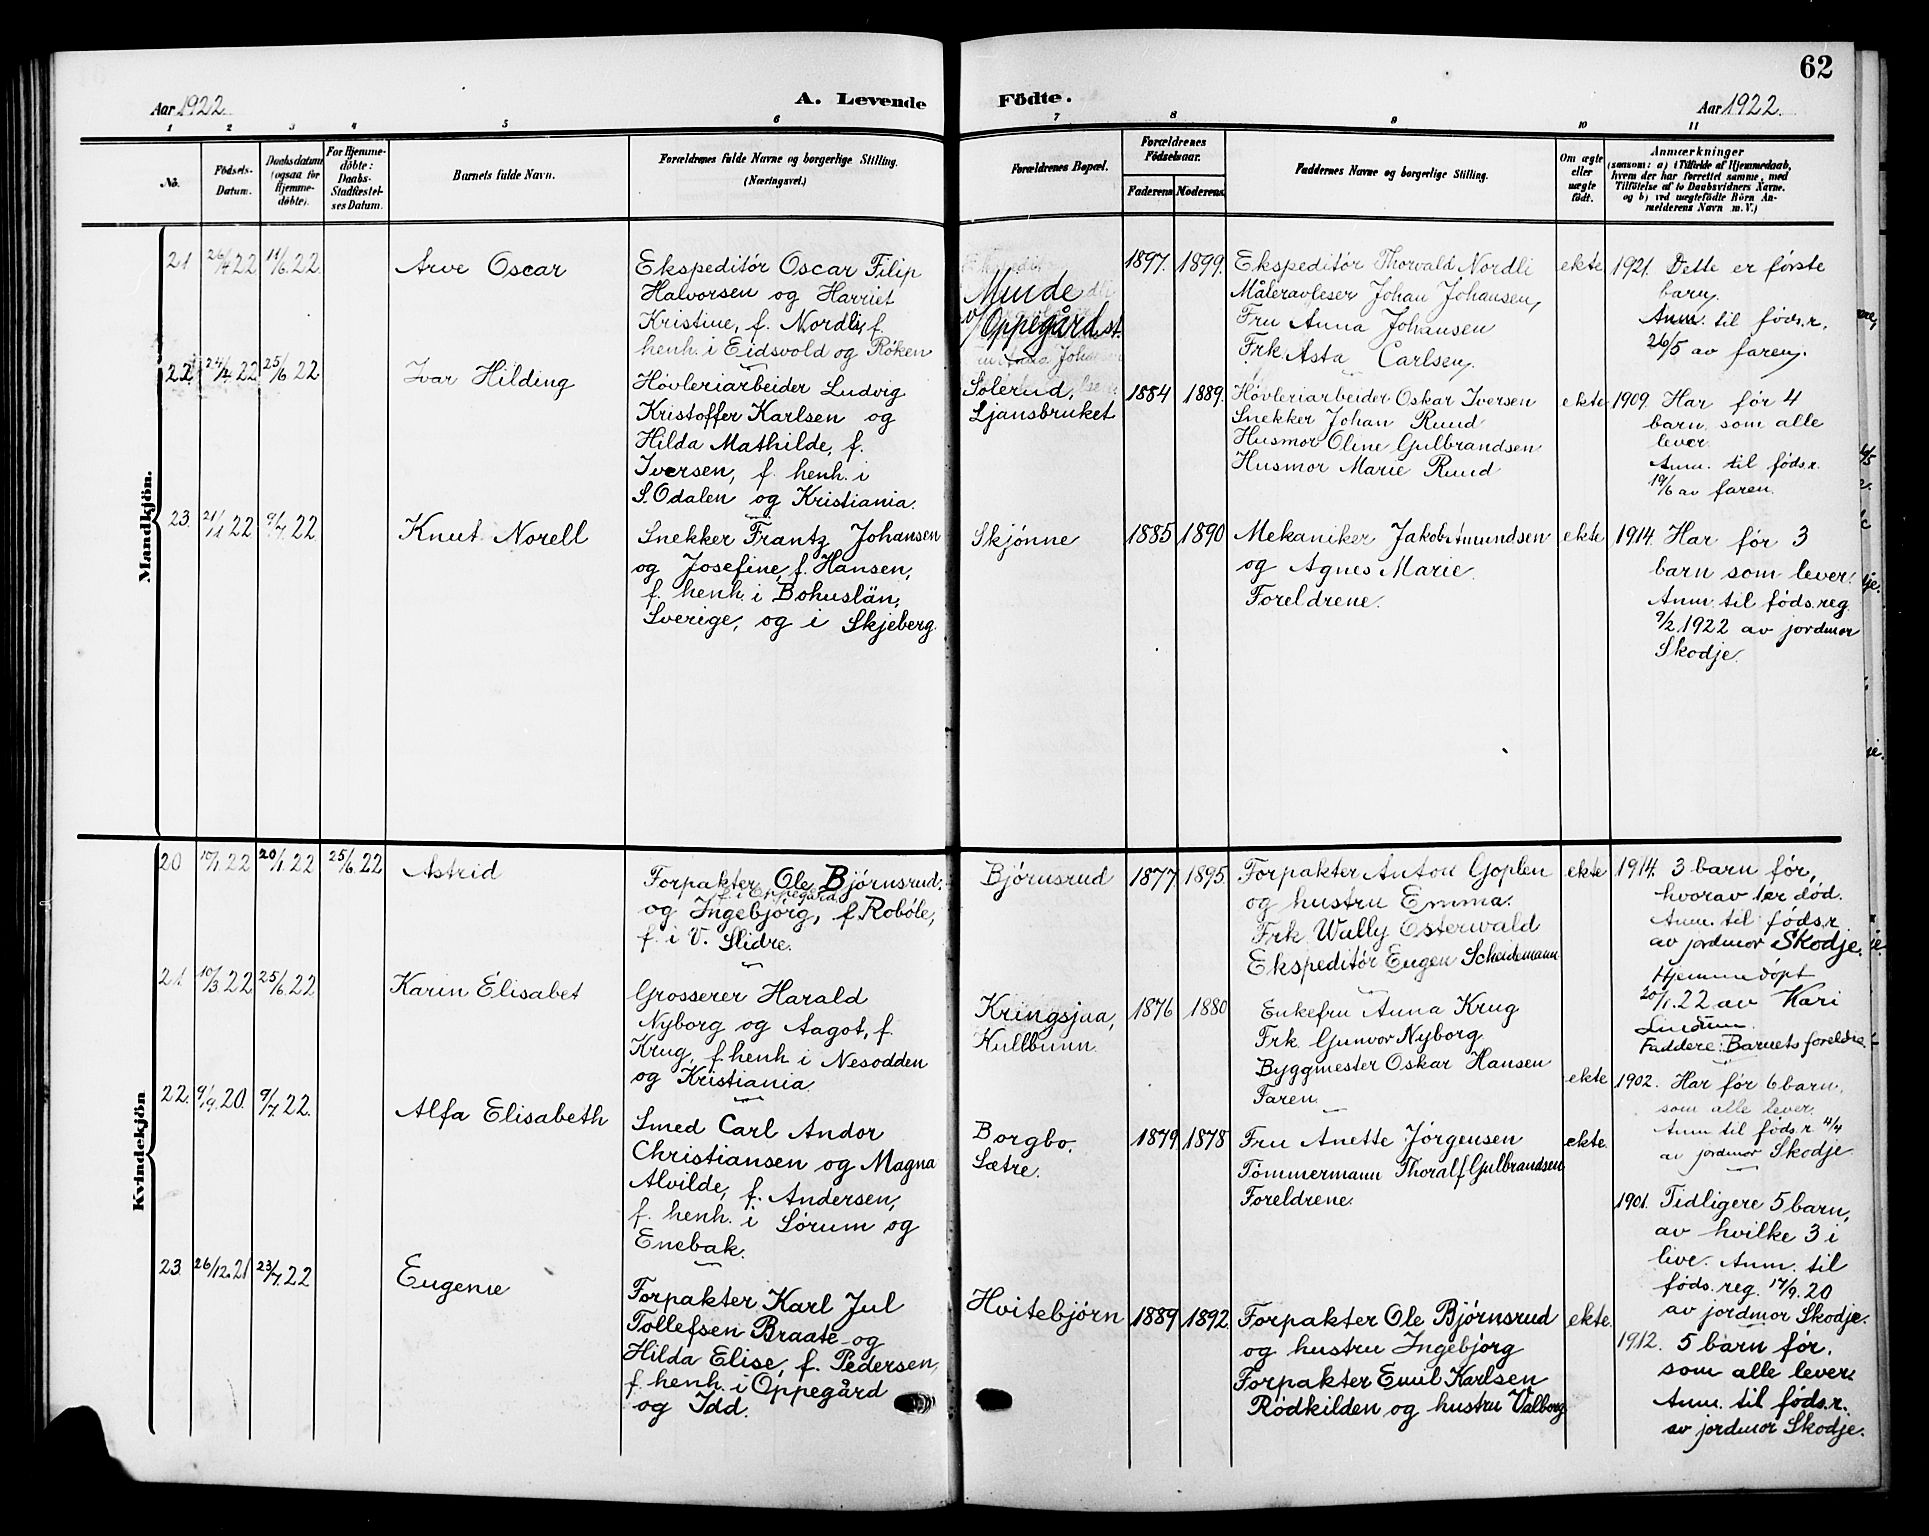 62
Aar 1922
A. Levende Födte.
Aar 1922.
1 2 3 4 5 6 7 8 9 10 11
No.
Födsels-
Datum.
Daabsdatum
(ogsaa for
Hjemme-
døbte).
For Hjemme-
døbte:
Daabs-
Stadfæstel-
ses Datum.
Barnets fulde Navn.
Forældrenes fulde Navne og borgerlige Stilling.
(Næringsvei.)
Forældrenes Bopæl.
Forældrenes
Födselsaar.
Faderens. Moderens.
Faddernes Navne og borgerlige Stilling.
Om ægte
eller
uægte
født.
Anmærkninger
(saasom: a) i Tilfælde af Hjemmedaab,
hvem der har forrettet samme, med
Tilföielse af to Daabsvidners Navne.
og b) ved uægtefödte Börn An-
melderens Navn m. V.)
Mandkjön.
21 26/4 22 11/6 22
Arve Oscar
Ekspeditór Oscar Filip
Halvorsen og Harriet
Kristine, f. Nordli, f.
henh. i Eidsvold og Róken
Minde
v/ Oppegård st.
1897. 1899.
Ekspeditór Thorvald Nordli
Måleravleser Johan Johansen,
Fru Anna Johansen
Frk. Asta Carlsen,
ekte
1921. Dette er fórste
barn.
Anm. til føds.r.
26/5 av faren.
22 24/4 22 25/6 22
Ivar Hilding
Hóvleriarbeider Ludvig
Kristoffer Karlsen og
Hilda Mathilde, f.
Iversen, f. henh. i
S. Odalen og Kristiania.
Solerud,
Ljansbruket
1884 1889.
Hóvleriarbeider Oskar Iversen
Snekker Johan Ruud
Husmor Oline Gulbrandsen
Husmor Marie Ruud
ekte
1909. Har før 4
barn som alle
lever.
Anm. til føds.r.
19/6 av faren.
23. 21/1 22 9/7 22
Knut Norell
Snekker Frantz Johansen
og Josefine, f. Hansen,
f. henh. i Bohuslän,
Sverige, og i Skjeberg.
Skjónne
1885 1890
Mekaniker Jakob Amundsen
og Agnes Marie.
Foreldrene.
ekte
1914. Har før 3
barn som lever.
Anm. til føds.reg.
9/2. 1922 av jordmor
Skodje.
Kvindekjön
20 10/1 22 20/1 22 25/6 22
Astrid
Forpakter Ole Bjórnsrud,
f. i Oppegård,
og Ingebjórg, f. Robóle,
f. i V. Slidre.
Bjórnsrud
1877 1895.
Forpakter Anton Goplen
og hustru Emma.
Frk. Wally Osterwald
Ekspeditór Eugen Scheidemann
ekte
1914. 3 barn fór,
hvorav 1 er dód.
Anm. til føds.r.
av jordmor Skodje.
Hjemmedópt
20/1. 22 av Kari
Lindum.
Faddere: Barnets foreldre.
21. 10/3 22 25/6 22
Karin Elisabet
Grosserer Harald
Nyborg og Aagot, f.
Krug, f. henh. i Nesodden
og Kristiania.
Kringsjaa,
Kullbunn.
1876 1880
Enkefru Anna Krug
Frk. Gunvor Nyborg.
Byggmester Oskar Hansen
Faren.
ekte
1902. Har før 6 barn.
som alle lever.
Anm. til føds.r. 4/4
av jordmor Skodje
22. 9/9. 20. 9/7 22.
Alfa Elisabeth
Smed Carl Andor
Christiansen og Magna
Alvilde, f. Andersen,
f. henh. i Sórum og
Enebak.
Borgbo.
Sætre.
1879 1878
Fru Anette Jórgensen
Tómmermann Thoralf Gulbrandsen
Foreldrene.
ekte.
1901. Tidligere 5 barn,
av hvilke 3 i
live. Anm. til
føds.reg. 17/9. 20
av jordmor Skodje.
23. 26/12. 21 23/7. 22
Eugenie
Forpakter Karl Jul
Tollefsen Braate og
Hilda Elise, f. Pedersen,
f. henh. i Oppegård
og Idd.
Hvitebjórn
1889 1892.
Forpakter Ole Bjórnsrud
og hustru Ingebjórg
Forpakter Emil Karlsen
Ródkilden og hustru Valborg
ekte.
1912. 5 barn før,
som alle lever.
Anm. til føds.r.
av jordmor Skodje.